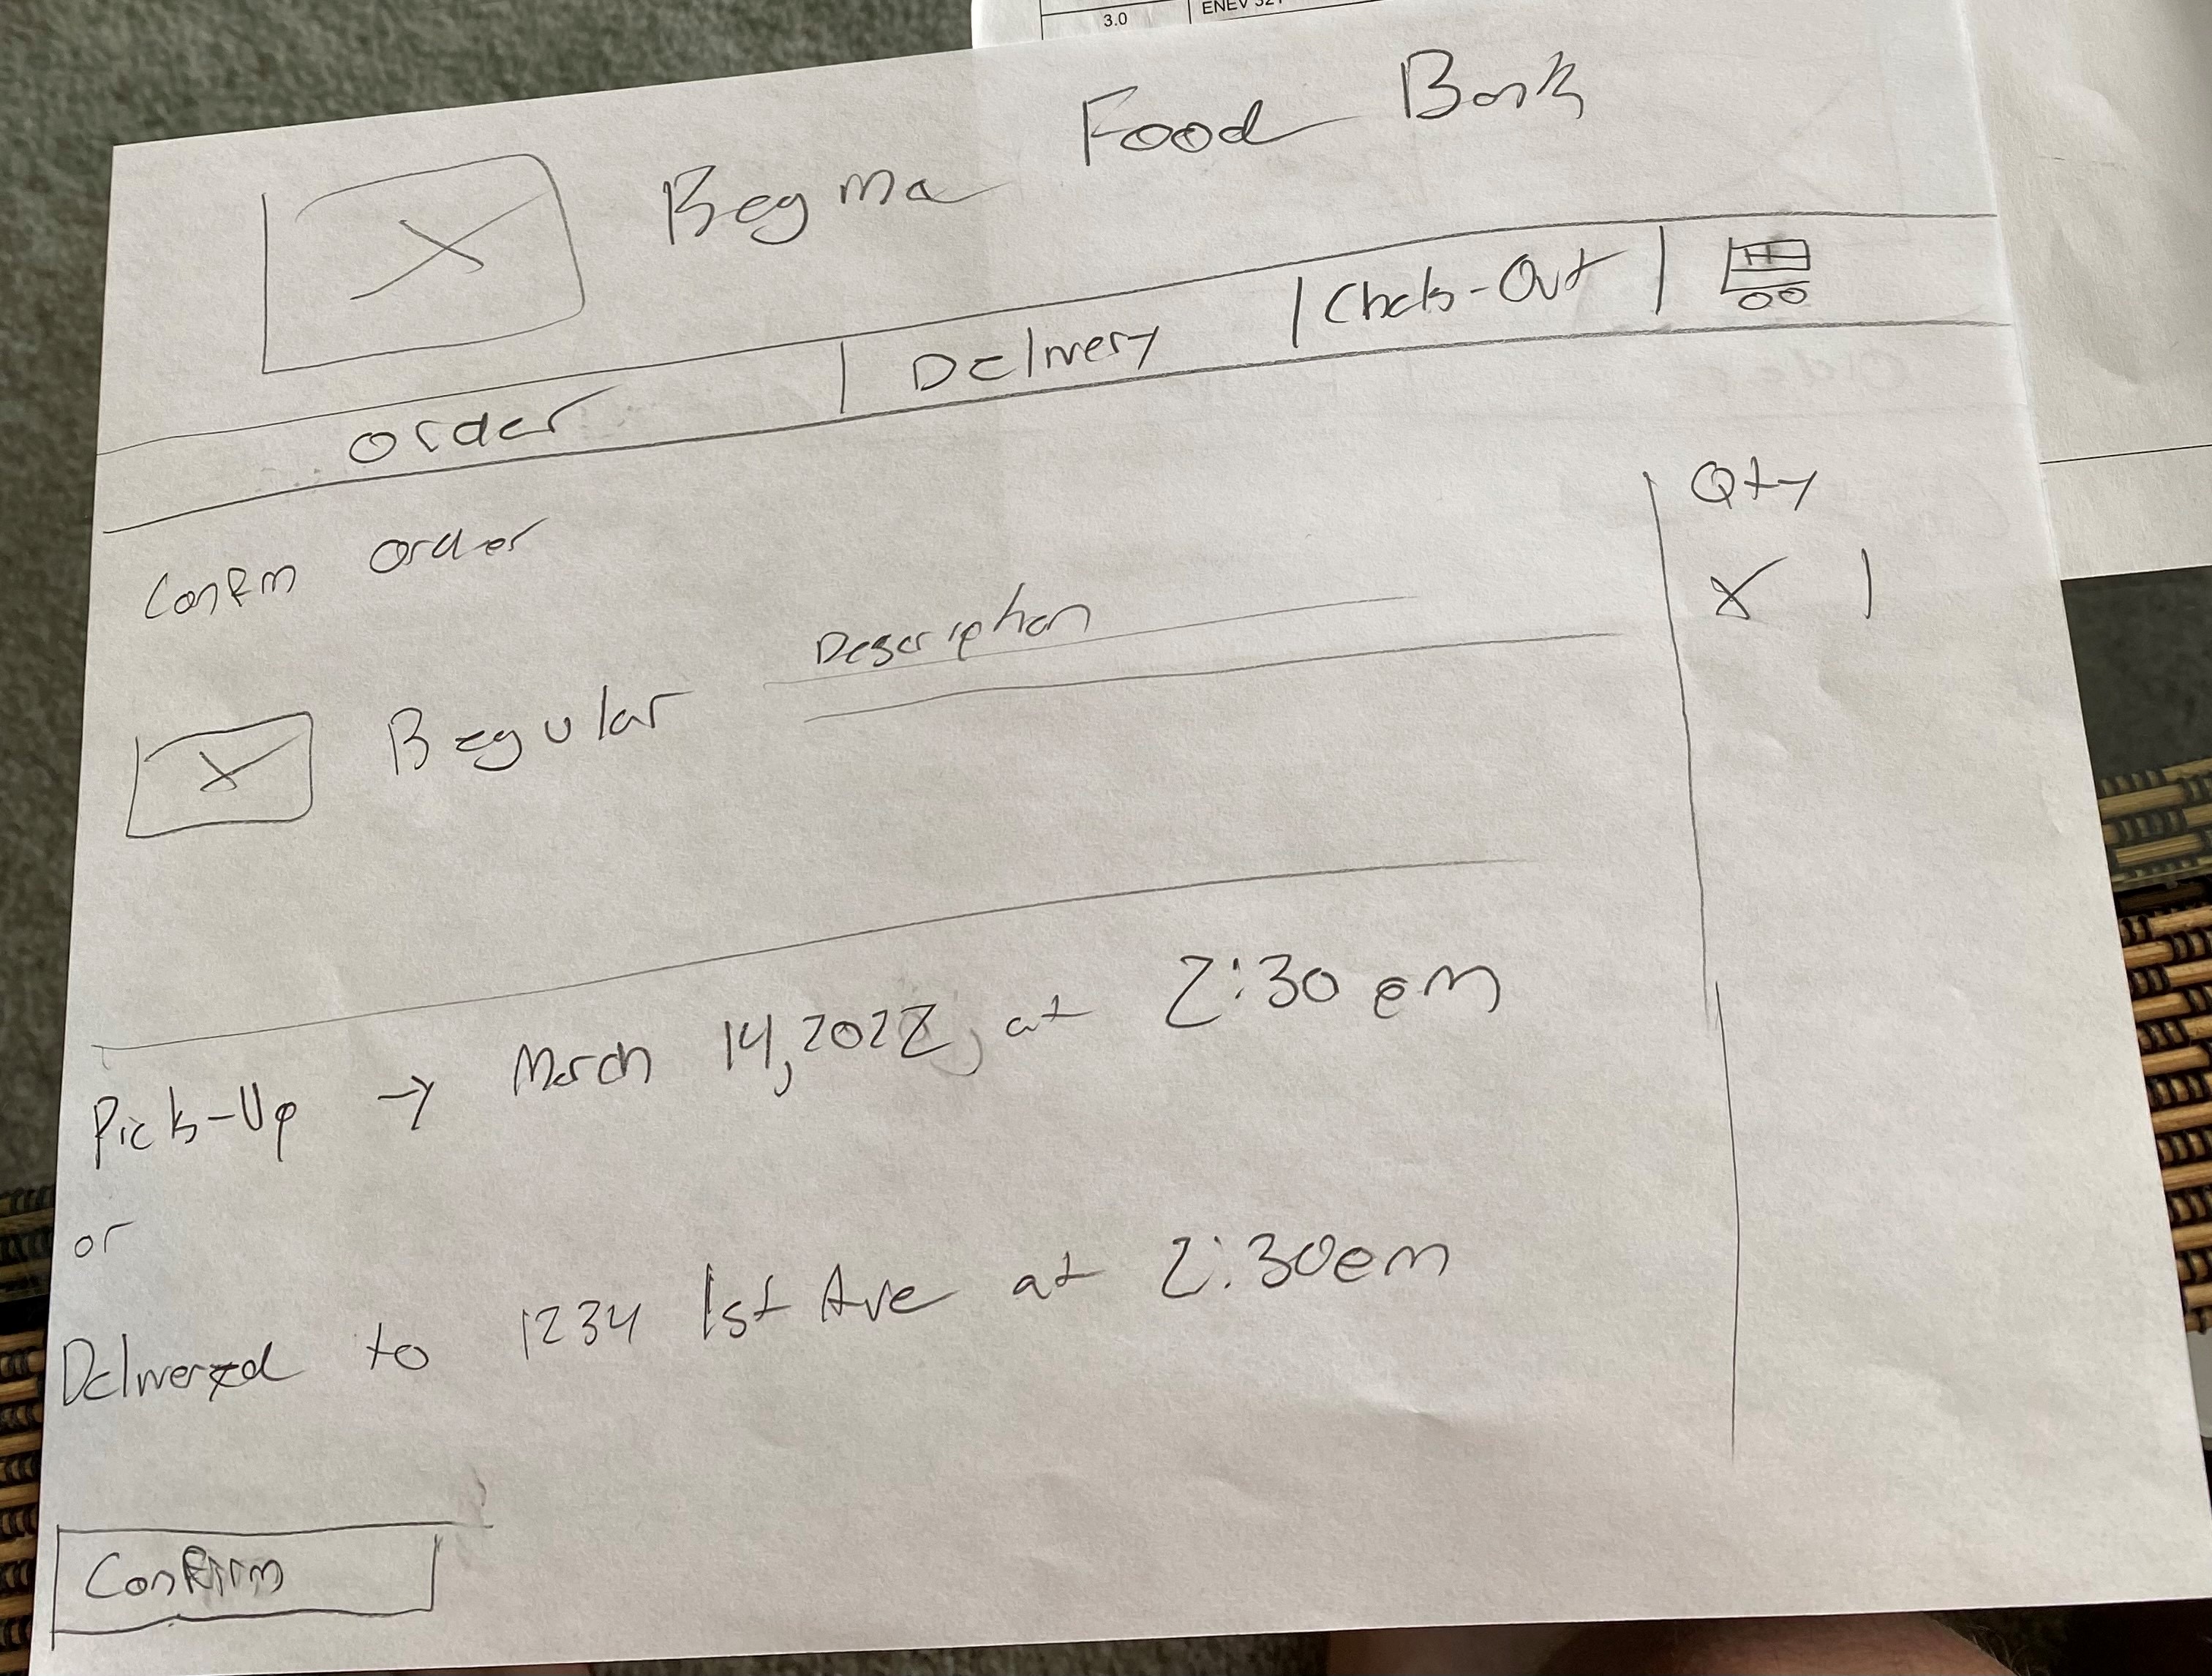 3.0 ENEV 321
Regina Food Bank
Order | Delivery | Check-Out |
Confirm Order
Qty
Description
X 1
Regular
Pick-Up → March 14, 2022, at 2:30 pm
or
Delivered to 1234 1st Ave at 2:30pm
Confirm